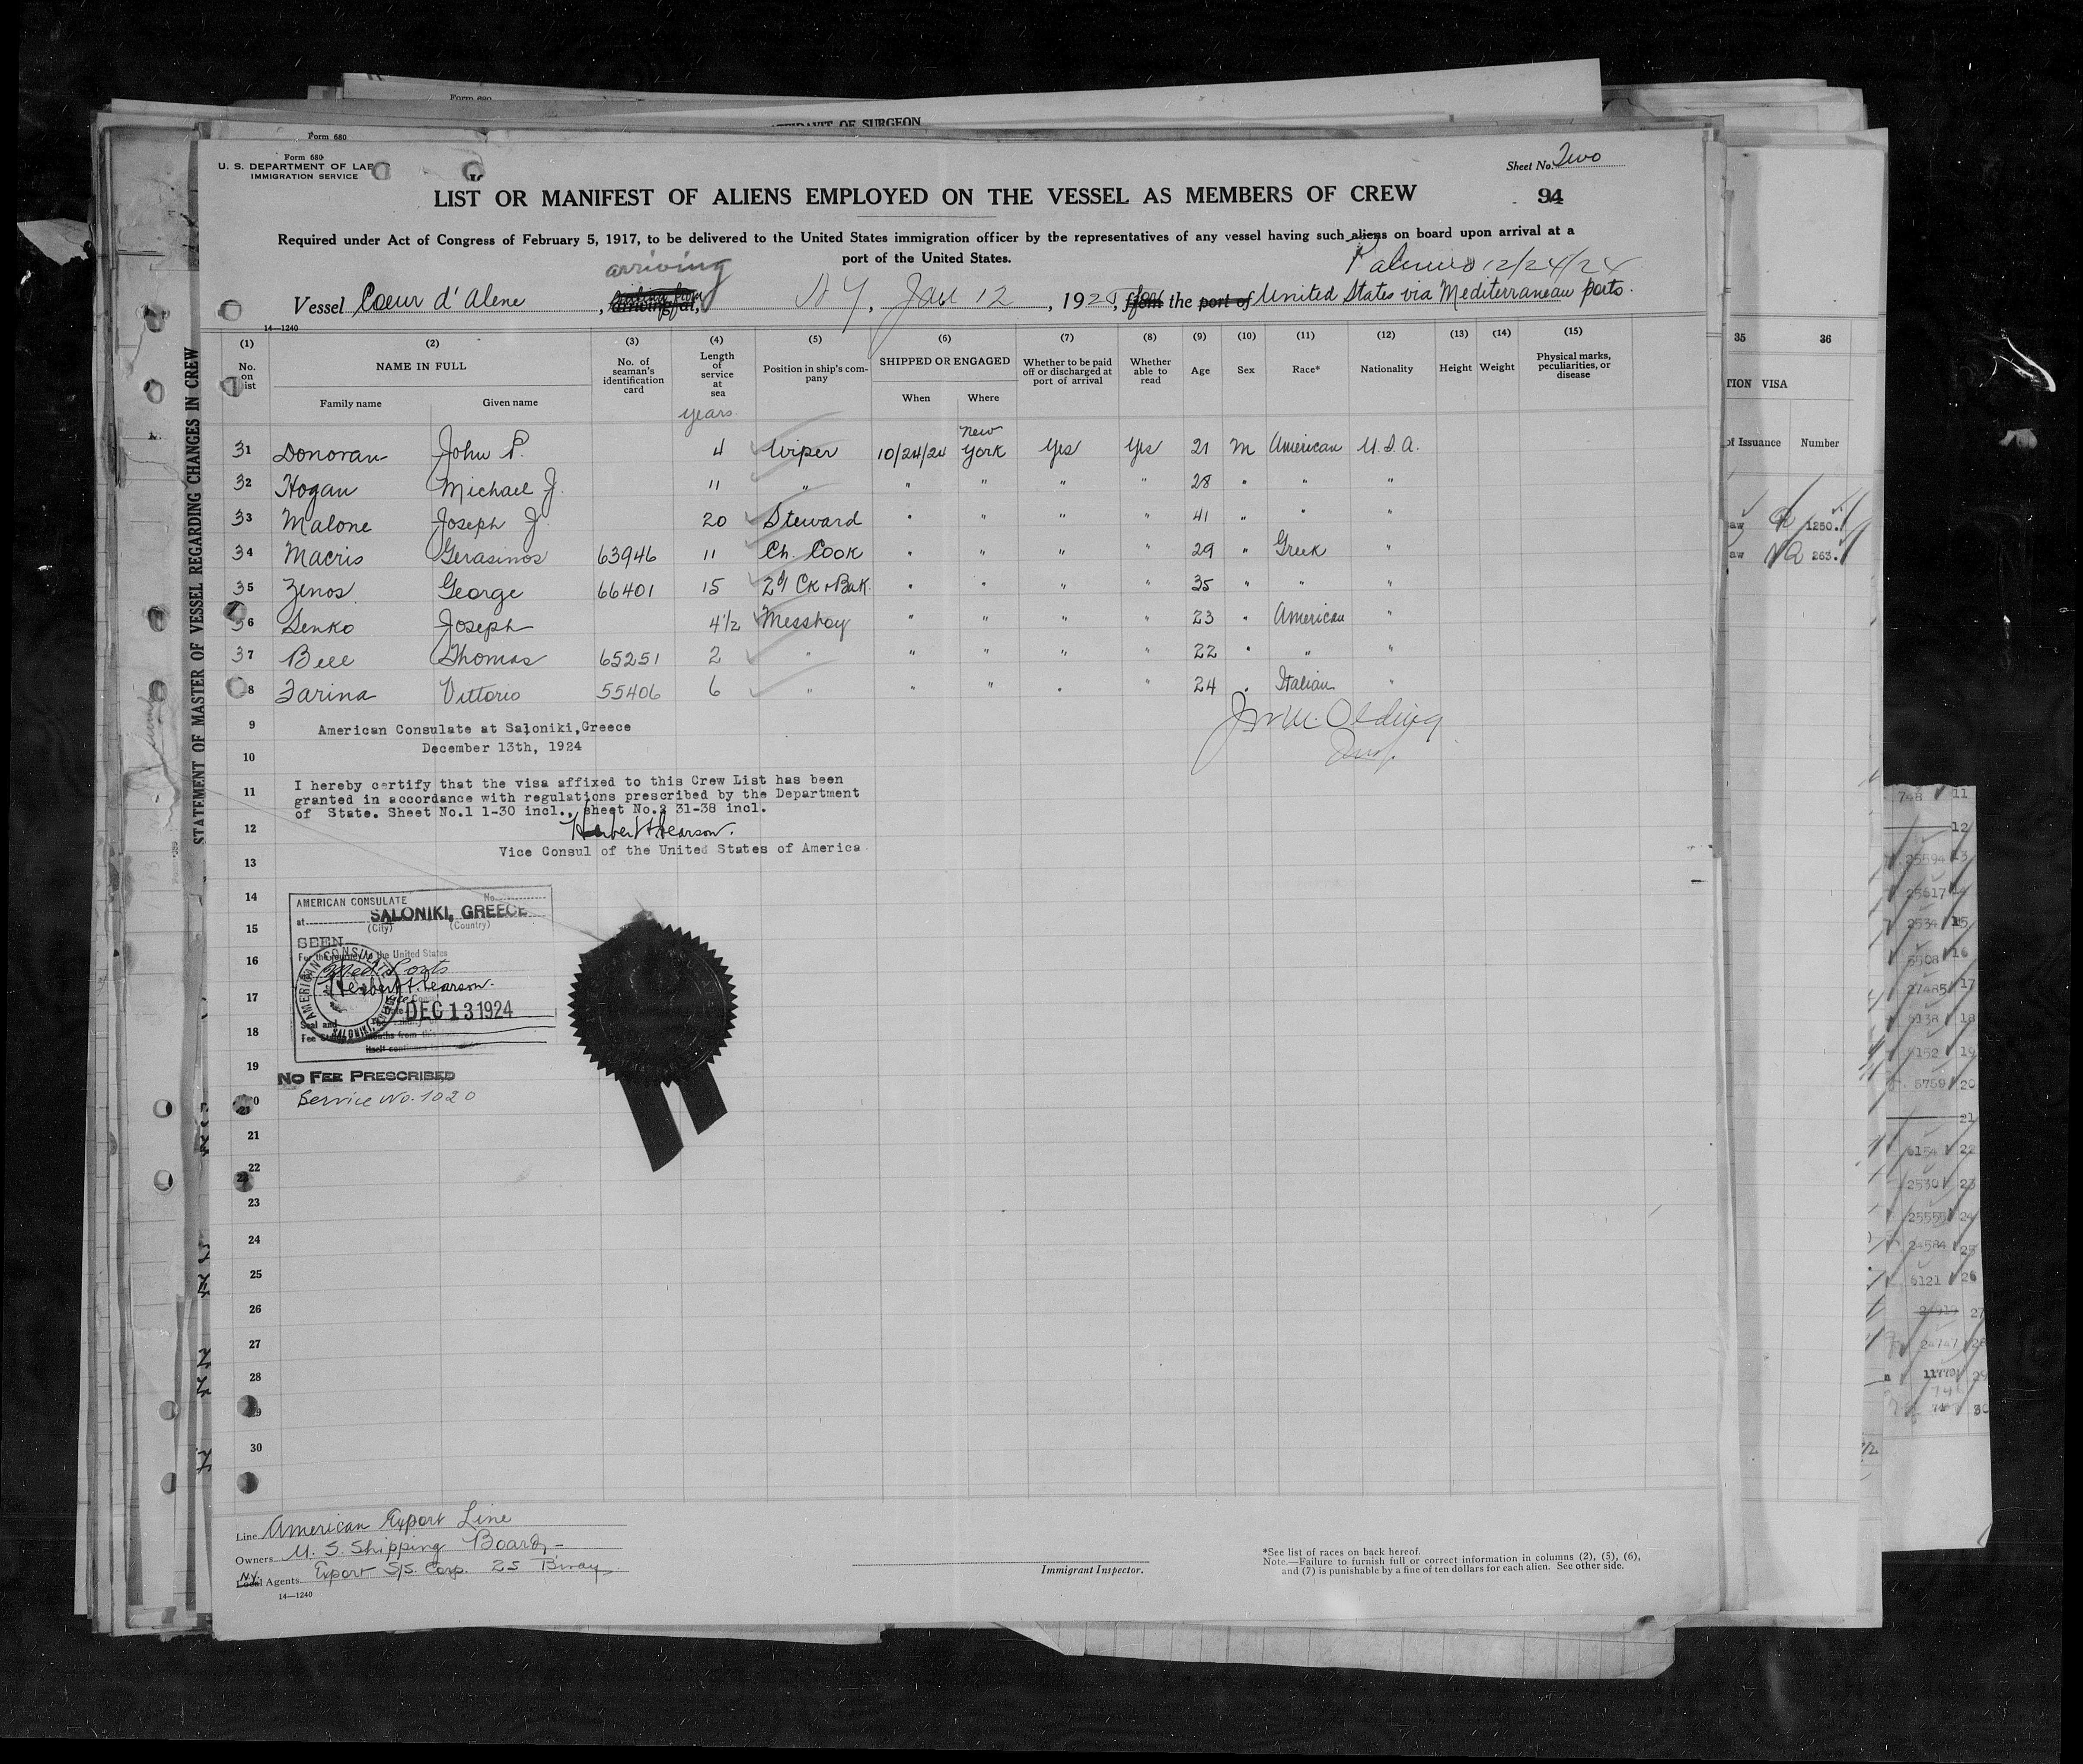 Form 680
AFFIDAVIT OF SURGEON
Form 680
Form 680
U. S. DEPARTMENT OF LABOR
IMMIGRATION SERVICE
Sheet No. Two
LIST OR MANIFEST OF ALIENS EMPLOYED ON THE VESSEL AS MEMBERS OF CREW
94
Required under Act of Congress of February 5, 1917, to be delivered to the United States immigration officer by the representatives of any vessel having such aliens on board upon arrival at a
port of the United States.
arriving
12/24/24
Vessel Coeur d'Alene, NY, Jan 12, 1925, from the port of United States via Mediterranean ports.
14—1240
STATEMENT OF MASTER OF VESSEL REGARDING CHANGES IN CREW
(1) (2) (3) (4) (5) (6) (7) (8) (9) (10) (11) (12) (13) (14) (15)
No. on list NAME IN FULL No. of seaman's identification card Length of service at sea Position in ship's company SHIPPED OR ENGAGED Whether to be paid off or discharged at port of arrival Whether able to read Age Sex Race* Nationality Height Weight Physical marks, peculiarities, or disease
Family name Given name years When Where
31 Donovan John P. 4 Wiper 10/24/24 New York Yes Yes 21 M American U.S.A.
32 Hogan Michael J. 11 " " " " " 28 " " "
33 Malone Joseph J. 20 Steward " " " " 41 " " "
34 Macris Gerasinos 63946 11 Ch. Cook " " " " 29 " Greek "
35 Zenos George 66401 15 2d Ck & Bak. " " " " 35 " " "
36 Senko Joseph 4½ Messboy " " " " 23 " American "
37 Bell Thomas 65251 2 " " " " " 22 " " "
8 Farina Vittorio 55406 6 " " " " " 24 " Italian "
9
American Consulate at Saloniki, Greece
December 13th, 1924
10
I hereby certify that the visa affixed to this Crew List has been
11
granted in accordance with regulations prescribed by the Department
of State. Sheet No.1 1-30 incl., sheet No.2 31-38 incl.
12
Herbert Pearson.
Vice Consul of the United States of America
13
14
AMERICAN CONSULATE No.
at SALONIKI, GREECE
(City) (Country)
15
SEEN
16
For the journey to the United States
Med Ports
17
Herbert Pearson.
DEC 13 1924
18
Seal and
Fee Stamp
19
NO FEE PRESCRIBED
20
Service No. 1020
21
22
23
24
25
26
27
28
29
30
Line American Export Line
Owners U. S. Shipping Board
N.Y. Local Agents Export S/S. Corp. 25 Bway.
14—1240
Immigrant Inspector.
*See list of races on back hereof.
Note.—Failure to furnish full or correct information in columns (2), (5), (6),
and (7) is punishable by a fine of ten dollars for each alien. See other side.
35 36
TION VISA
of Issuance Number
1250.
263.
748 11
12
25594 13
25617 14
2534 15
5508 16
27485 17
5138 18
5152 19
5759 20
21
5154 22
2530 23
25555 24
24584 25
5121 26
27
24747 28
11779 29
30